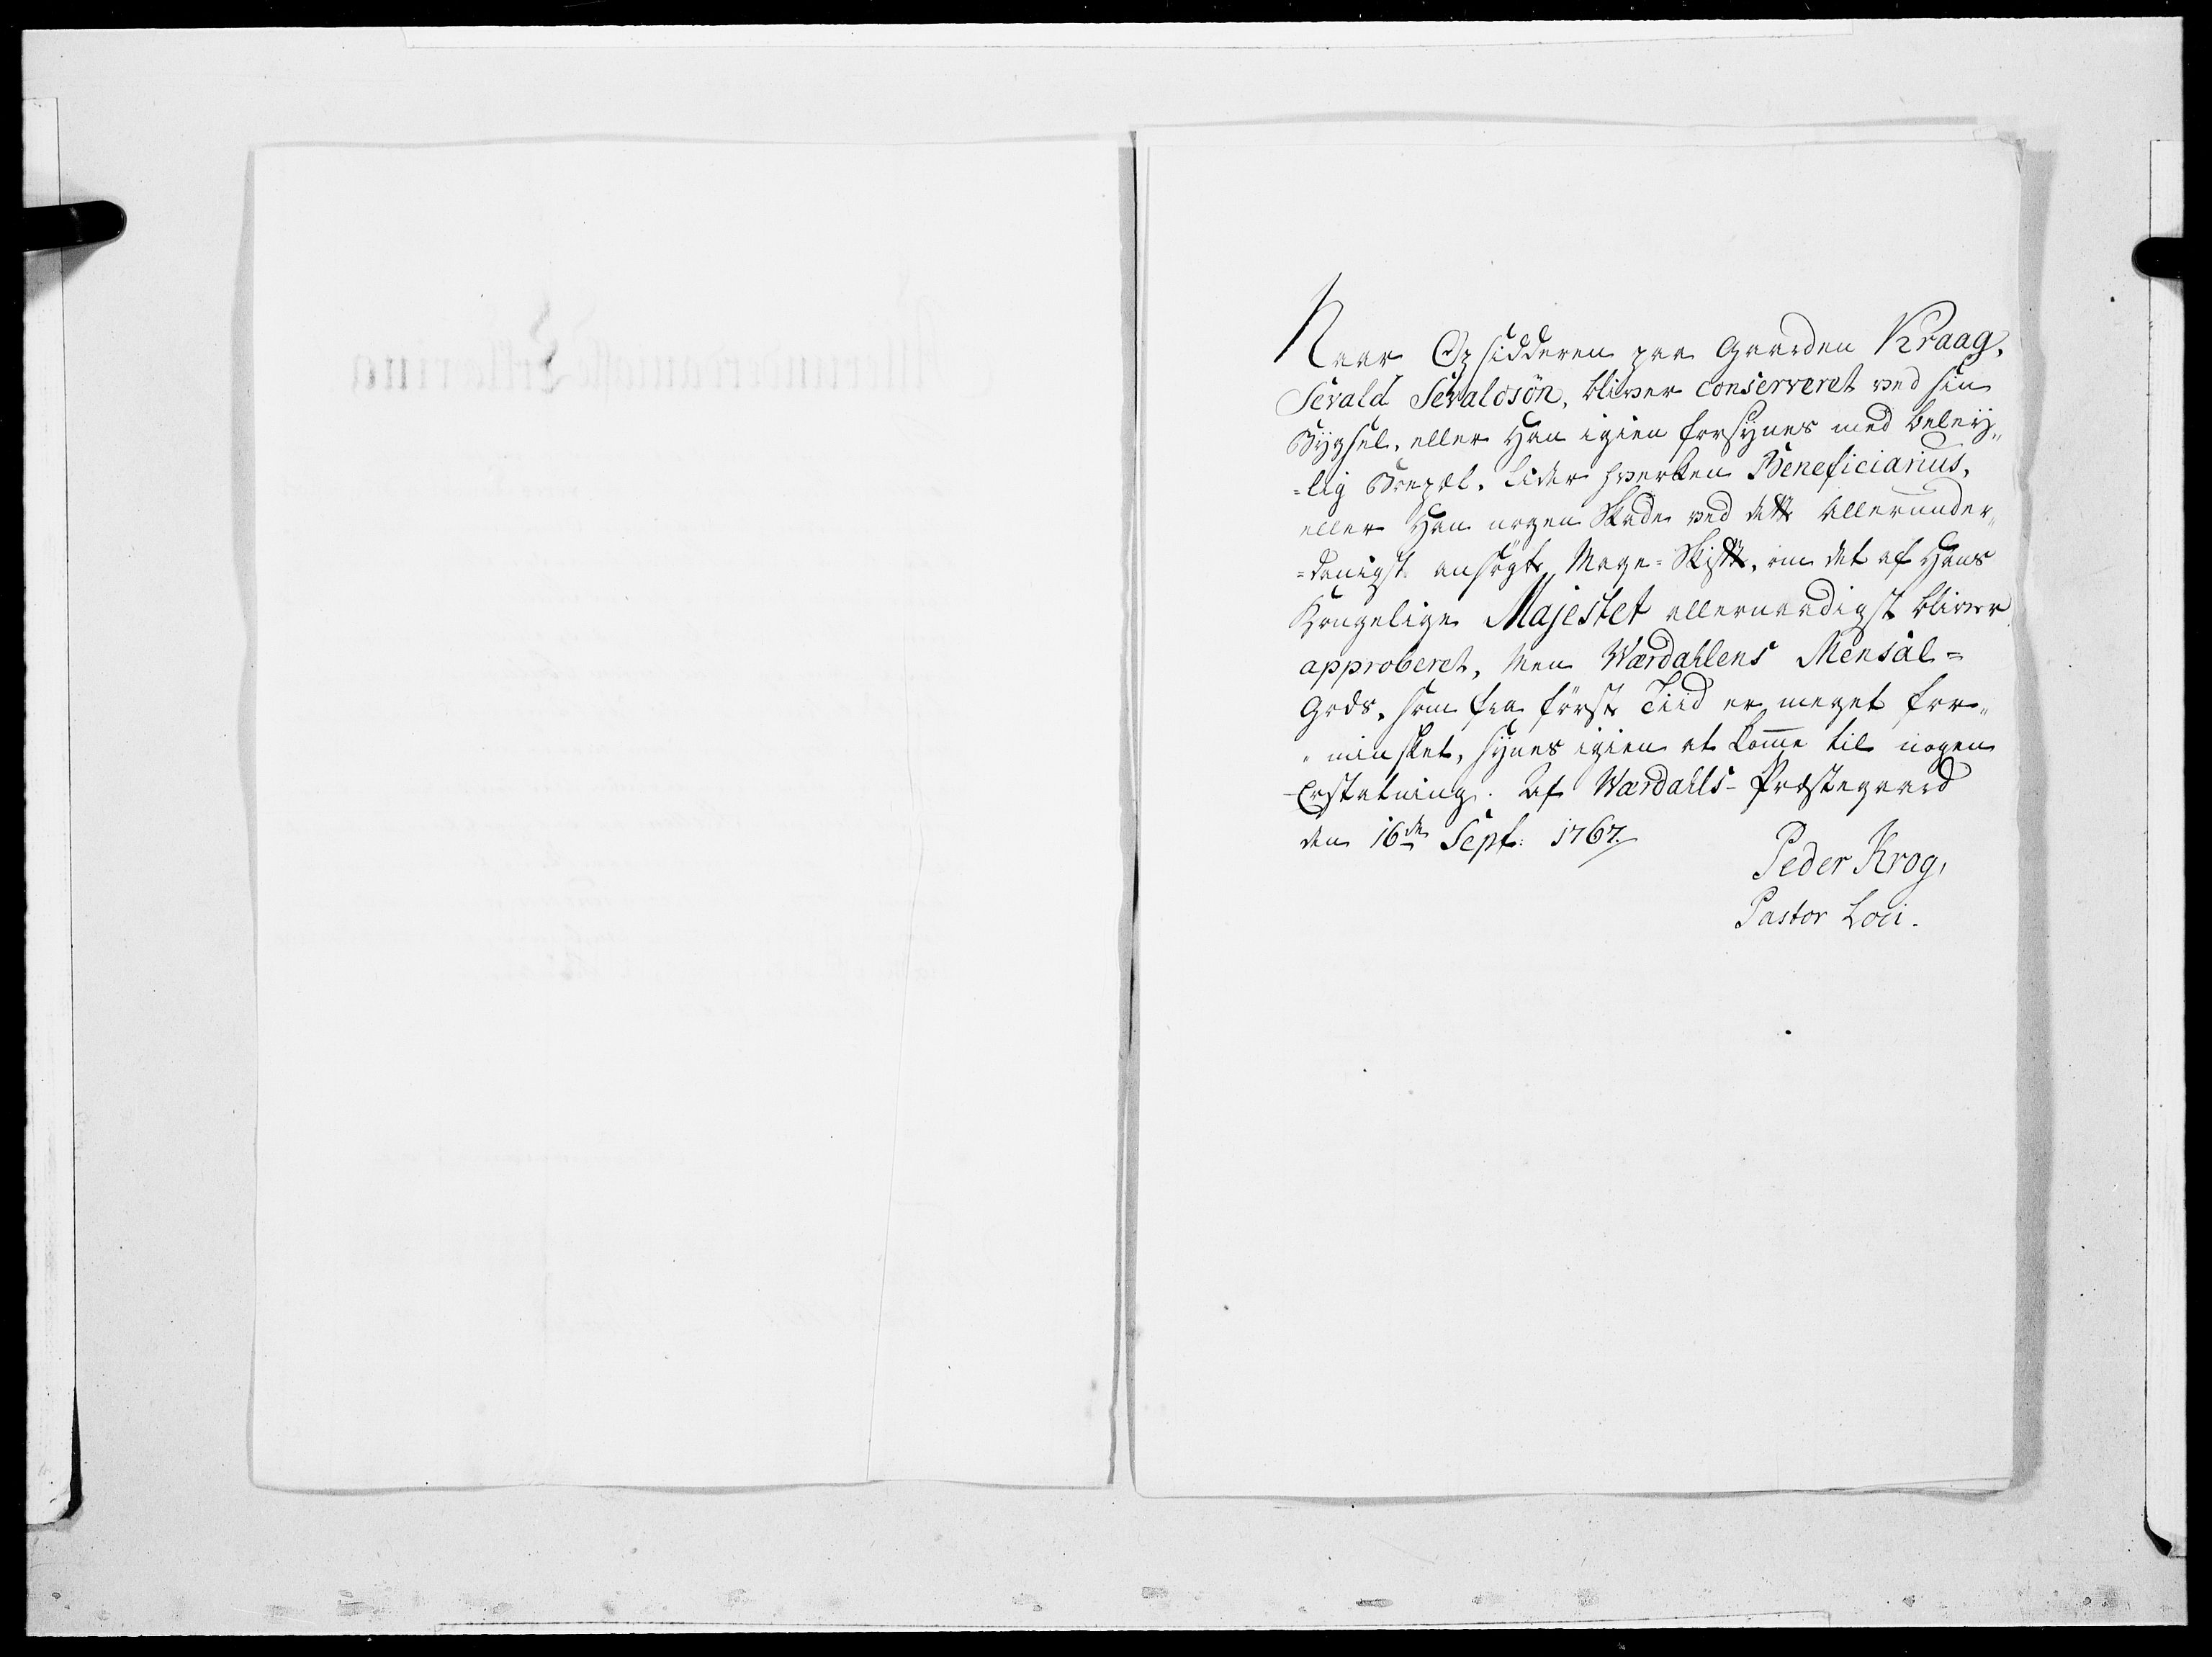 Naar Opsidderen paa Gaarden Kraag,
Sevald Sevaldsön, bliver conserveret ved sin
Bÿgsel, eller Han igien forsÿnes med beleÿ„
=lig Brepæl. lider hverken Beneficiarius,
eller Han nogen Skade ved dette allerunder„
=danigst ansøgte Mage=Skifte, om det af Hans
Kongelige Majestet allernaadigst bliver
approberet, Men Wærdahlens Mensal=
Gods, som fra første Tiid er meget for„
„minsket, sÿnes igien at komme til nogen
Erstatning. Af Wærdahls-Præstegaard
den 16de Sept: 1767.
Peder Krog,
Pastor Loci.